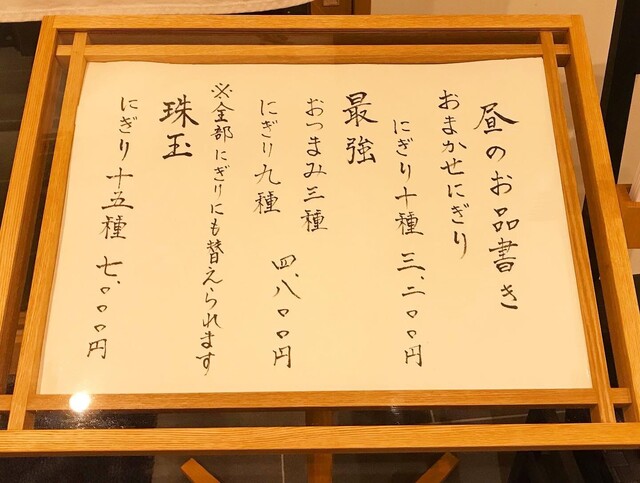 昼のお品書き
おまかせにぎり
にぎり十種 三、二〇〇円
最強
おつまみ三種
にぎり九種 四、八〇〇円
※全部にぎりにも替えられます
珠玉
にぎり十五種 七、〇〇〇円